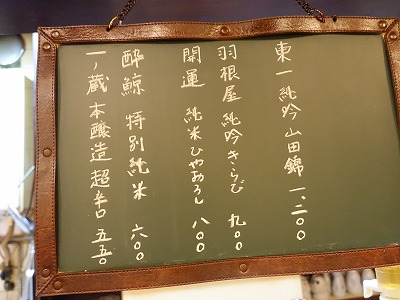 東一 純吟 山田錦 一、二〇〇
羽根屋 純吟 きらび 九〇〇
開運 純米ひやおろし 八〇〇
酔鯨 特別純米 六〇〇
一ノ蔵 本醸造 超辛口 五五〇